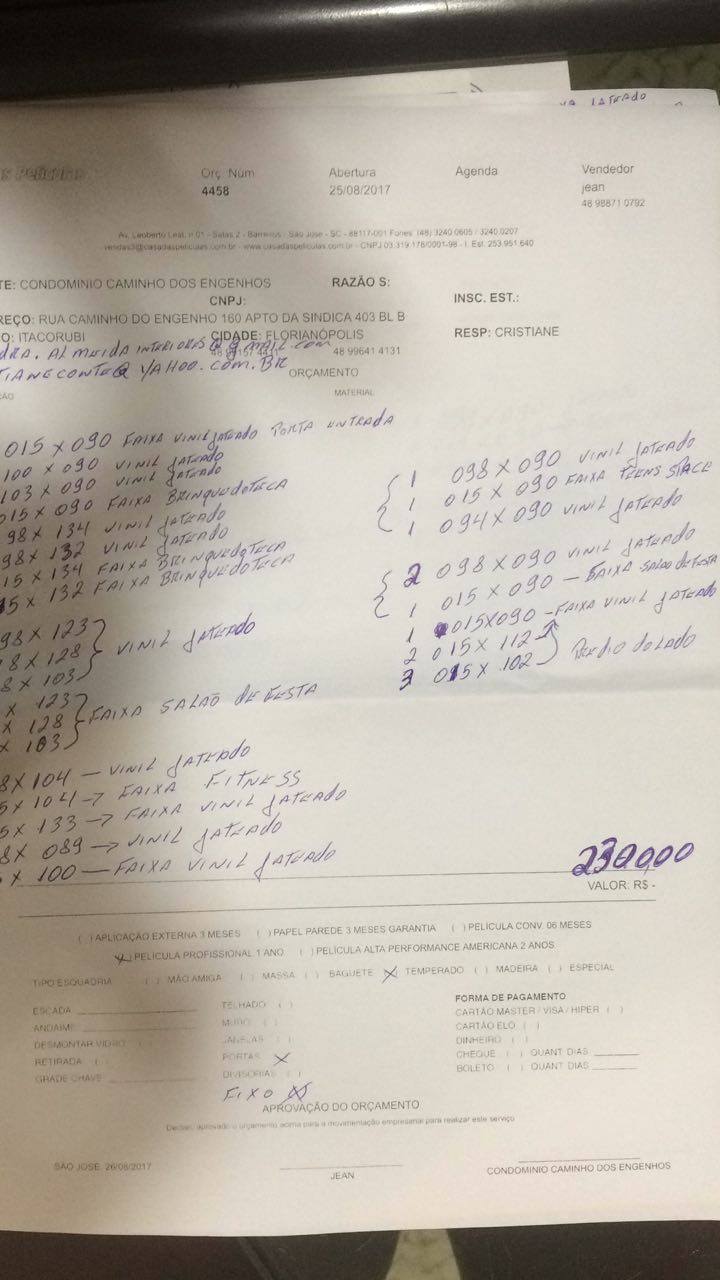 VA JATEADO
s Películas
Orç. Núm
Abertura
Agenda
Vendedor
4458
25/08/2017
jean
48 98871 0792
Av. Leoberto Leal, n 01 - Salas 2 - Barreiros - São José - SC - 88117-001 Fones: (48) 3240.0605 / 3240.0207
vendas3@casadaspeliculas.com.br - www.casadaspeliculas.com.br - CNPJ 03.319.178/0001-98 - I. Est. 253.951.640
TE: CONDOMINIO CAMINHO DOS ENGENHOS
RAZÃO S:
CNPJ:
INSC. EST.:
REÇO: RUA CAMINHO DO ENGENHO 160 APTO DA SINDICA 403 BL B
O: ITACORUBI
CIDADE: FLORIANÓPOLIS
RESP: CRISTIANE
DRA. ALMEIDA INTERIORES@gmail.com
48 99641 4131
TIANECONTE@YAHOO.COM.BR
ORÇAMENTO
ÇÃO
MATERIAL
015 X 090 FAIXA VINIL JATEADO PORTA ENTRADA
100 X 090 VINIL JATEADO
103 X 090 VINIL JATEADO
015 X 090 FAIXA BRINQUEDOTECA
98 X 134 VINIL JATEADO
98 X 132 VINIL JATEADO
15 X 134 FAIXA BRINQUEDOTECA
15 X 132 FAIXA BRINQUEDOTECA
98 X 123
8 X 128 VINIL JATEADO
8 X 103
X 123
X 128 FAIXA SALÃO DE FESTA
X 103
8 X 104 — VINIL JATEADO
5 X 104 -> FAIXA FITNESS
5 X 133 -> FAIXA VINIL JATEADO
8 X 089 -> VINIL JATEADO
X 100 — FAIXA VINIL JATEADO
1 098 X 090 VINIL JATEADO
1 015 X 090 FAIXA TEENS SPACE
1 094 X 090 VINIL JATEADO
2 098 X 090 VINIL JATEADO
1 015 X 090 — FAIXA SALÃO DE FESTA
1 015X090 — FAIXA VINIL JATEADO
2 015 X 112
3 015 X 102 PREDIO DO LADO
230000
VALOR: R$ -
( ) APLICAÇÃO EXTERNA 3 MESES ( ) PAPEL PAREDE 3 MESES GARANTIA ( ) PELÍCULA CONV. 06 MESES
(X) PELÍCULA PROFISSIONAL 1 ANO ( ) PELÍCULA ALTA PERFORMANCE AMERICANA 2 ANOS
TIPO ESQUADRIA ( ) MÃO AMIGA ( ) MASSA ( ) BAGUETE (X) TEMPERADO ( ) MADEIRA ( ) ESPECIAL
ESCADA
TELHADO ( )
FORMA DE PAGAMENTO
ANDAIME
MURO ( )
CARTÃO MASTER / VISA / HIPER ( )
DESMONTAR VIDRO ( )
JANELAS ( )
CARTÃO ELO ( )
RETIRADA ( )
PORTAS X
DINHEIRO ( )
GRADE CHAVE
DIVISÓRIAS ( )
CHEQUE ( ) QUANT DIAS
FIXO (X)
BOLETO ( ) QUANT DIAS
APROVAÇÃO DO ORÇAMENTO
Declaro aprovado o orçamento acima para a movimentação empresarial para realizar este serviço
SÃO JOSE, 26/08/2017
JEAN
CONDOMINIO CAMINHO DOS ENGENHOS